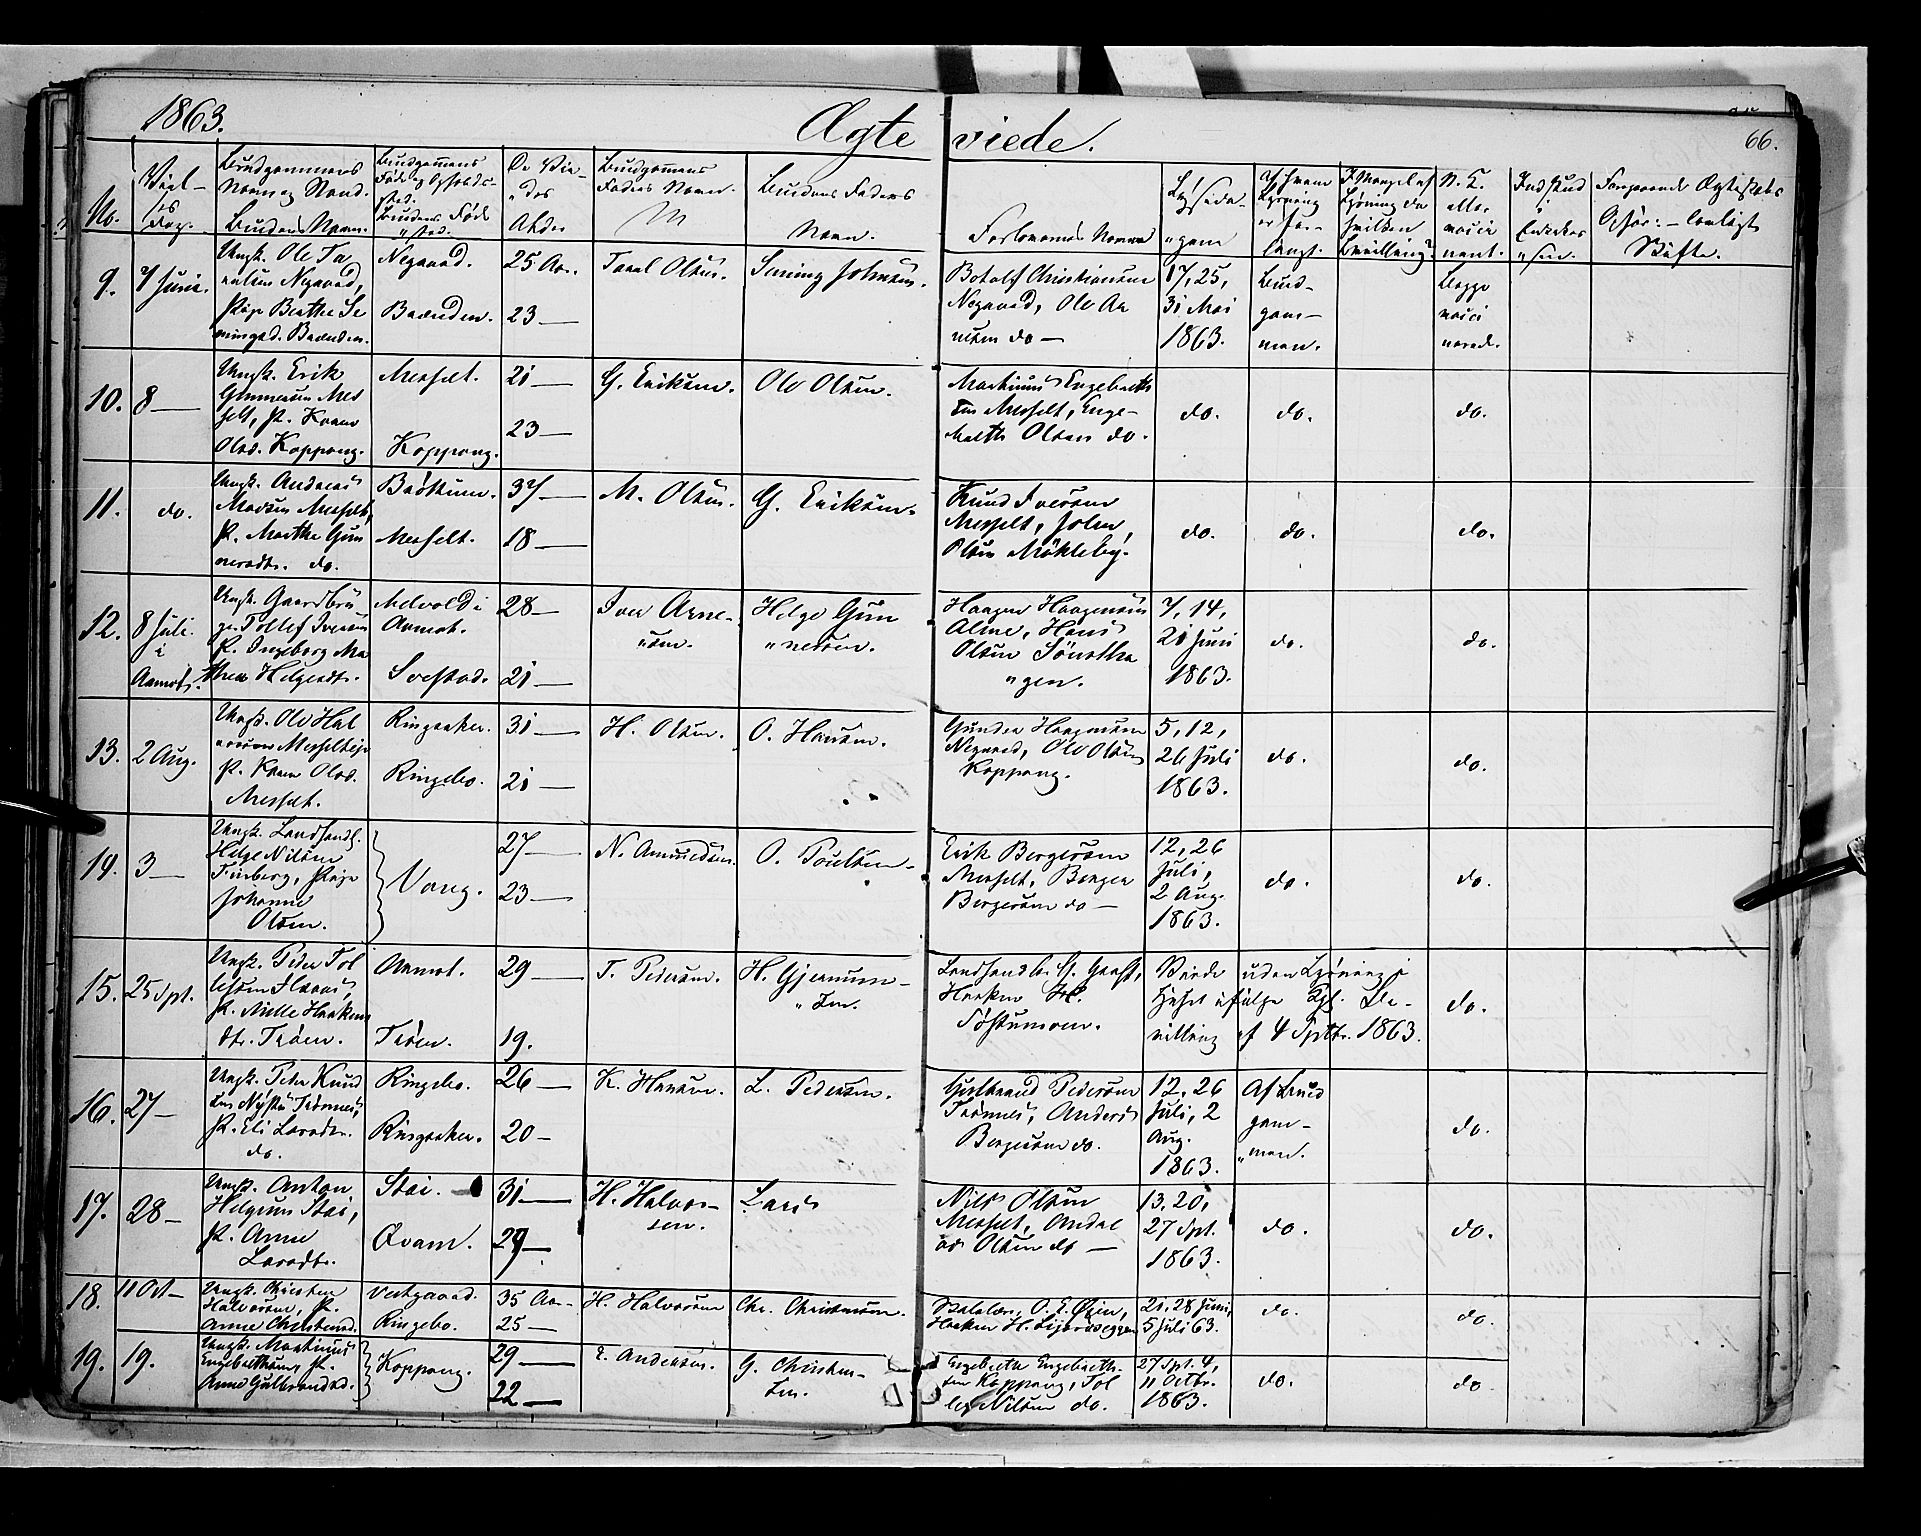 1863.
Ægte viede.
66.
No.
Viel-
ses
Dag.
Brudgommens
Navn og Stand.
Brudens Navn.
Brudgomens
Føde og Opholds-
sted.
Brudens Føde
"sted.
De Vie-
"des
Alder
Brudgomens
Faders Navn.
Brudens Faders
Navn.
Forlovernes Navne
Lysseda-
"gene
Af hvem
Lysning
er for-
langt.
I Mangel af
Lysning da
hvilken
Bevilling?
N. B.
eller
vacci
neret.
Indskud
i
Enkekas
"sen.
Foregaaende Ægteskabs
Ophør: – lovligt
Skifte.
9.
7 Juni.
Ungk. Ole Ta
Negaard,
Pige Berthe Se
Negaard.
25 Aar.
23 —
Taral Olsen.
Sening Johnsen.
Botolf Christiansen
Negaard, Ole Ar
nesen do —
17, 25,
31 Mai
1863.
Brud-
gom-
men.
Begge
vacci
nerede.
10.
8 —
Ungk. Erik
Gunnersen Mes
selt, P. Karen
Olsd. Koppang.
Messelt.
Koppang.
21 —
23 —
G. Eriksen.
Ole Olsen.
Martinus Engebreth
sen Messelt, Enge-
breth Olsen do.
do.
do.
do.
11.
do.
Ungk. Andreas
Madsen Messelt,
P. Marthe Gun
nersdtr. do.
Brøttum.
Messelt.
37 —
18 —
M. Olsen.
G. Eriksen.
Knud Iversen
Messelt, John
Olsen Mökleby.
do.
do.
do.
12.
8 Juli.
i
Aamot.
Ungk. Gaardbru
ger Tollef Iversen
P. Ingeborg Ma
threa Helgesdtr.
Melvold i
Aamot.
Svestad.
28 —
21 —
Iver Arne-
"sen.
Helge Gun
"nersen.
Haagen Haagensen
Alme, Hans
Olsen Sönstha
"gen.
7, 14,
21 Juni
1863.
do.
do.
13.
2 Aug.
Ungk. Ole Hal
vorsen Messelteje
P. Karen Olsd.
Messelt.
Ringsaker.
Ringebo.
31 —
21 —
H. Olsen.
O. Hansen.
Gunder Haagensen
Negaard, Ole Olsen
Koppang.
5, 12,
26 Juli
1863.
do.
do.
14.
3 —
Ungk. Landhandl.
Helge Nilsen
Finberg, Pige
Johanne
Olsen.
Vang.
27 —
23 —
N. Amundsen.
O. Poulsen.
Erik Bergersen
Messelt, Berger
Bergersen do —
12, 26
Juli,
2 Aug.
1863.
do.
do.
15.
25 Spt.
Ungk. Peder Tol
lefsen Haraas,
P. Mille Haakens
dtr. Tröen.
Aamot.
Tröen.
29 —
19.
T. Pedersen.
H. Gjermun-
"sen.
Landhandler G. Graff,
Haaken H.
Töstumoen.
Viede uden Lysning i
Huset ifølge Kgl. Be-
villing af 4 Sptbr. 1863.
do.
16.
27 —
Ungk. Peder Knud
sen Nystu Trönnes,
P. Eli Larsdtr.
do.
Ringebo.
Ringsaker.
26 —
20 —
K. Hansen.
L. Pedersen.
Gulbrand Pedersen
Trönnes, Anders
Bergersen do.
12, 26
Juli, 2
Aug.
1863.
Af Brud
gom-
"men.
do.
17.
28 —
Ungk. Anton
Helgesen Stai,
P. Anne
Larsdtr.
Stai.
Qvam.
31 —
29 —
H. Halvor-
sen.
Lars
Nils Olsen
Messelt, Andre
as Olsen do —
13, 20,
27 Spt.
1863.
do.
do.
18.
11 Oct —
Ungk. Christen
Halvorsen, P.
Anne Christensd.
Vestgaard.
Ringebo.
35 Aar
25 —
H. Halvorsen
Chr. Christensen.
Skolelær. O. E. Öien,
Haaken H.
21, 28 Juni,
5 Juli 63.
do.
do.
19.
19.
Ungk. Martinus
Engebrethsen, P.
Anne Gulbrandsd.
Koppang.
29 —
22 —
E. Andersen.
G. Christen-
sen.
Engebreth Engebreth-
sen Koppang, Tol
lef Nilsen do.
27 Spt. 4,
11 Octbr.
1863.
do.
do.